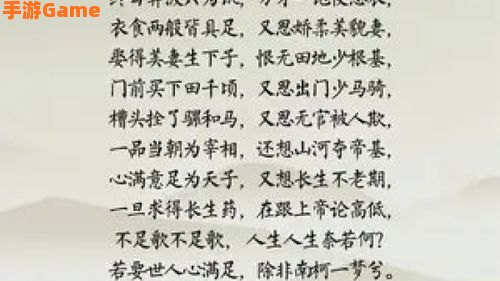 手游Game
衣食两般皆具足，又思娇柔美貌妻，
娶得美妻生下子，恨无田地少根基，
门前买下田千顷，又思出门少马骑，
槽头拴了骡和马，又思无官被人欺，
一品当朝为宰相，还想山河夺帝基，
心满意足为天子，又想长生不老期，
一旦求得长生药，在跟上帝论高低，
不足歌不足歌，人生人生奈若何？
若要世人心满足，除非南柯一梦兮。